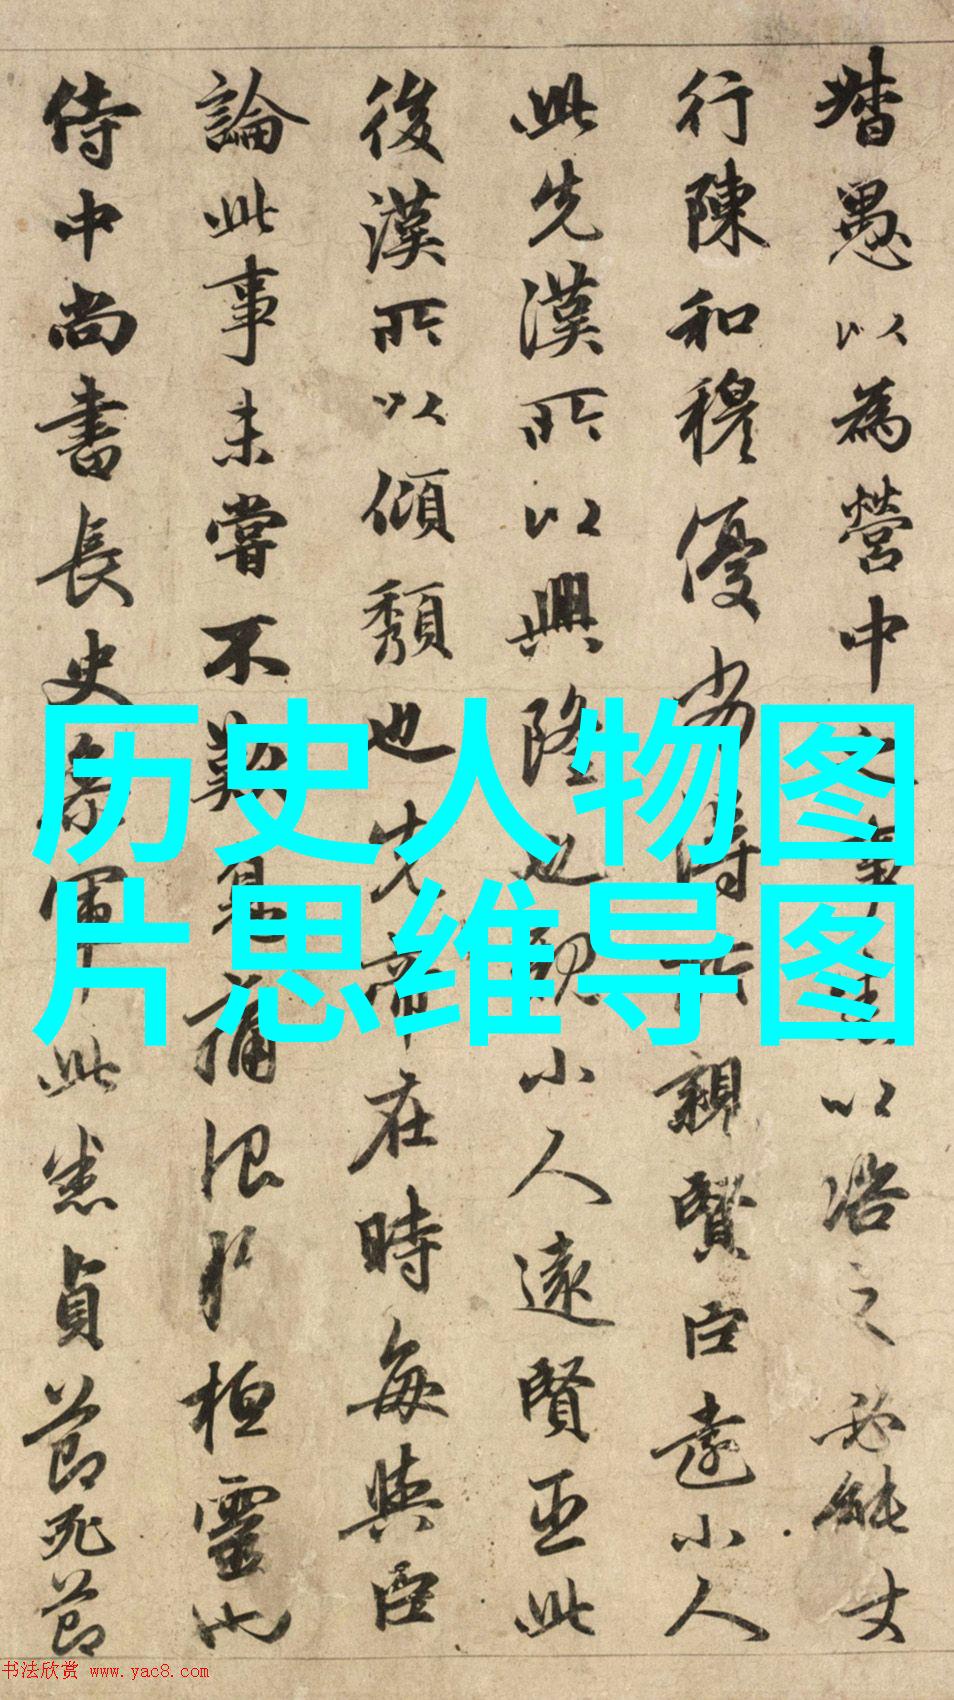 督愚以為營中之事悉以咨之必能
行陳和穆優劣得所親賢臣遠小人
此先漢所以興隆也親小人遠賢臣此
後漢所以傾頹也先帝在時每與臣
論此事未嘗不歎息痛恨於桓靈也
侍中尚書長史參軍此悉貞節死節
历史人物图
片思维导图
书法欣赏 www.yac8.com